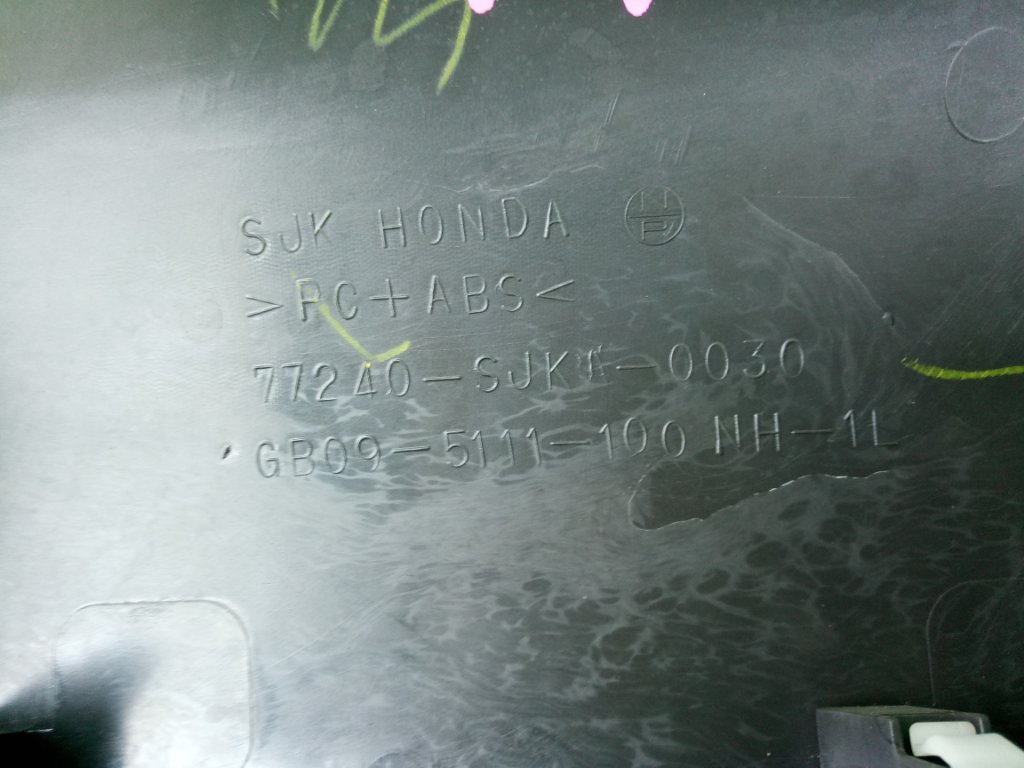 SJK HONDA
>PC+ABS<
77240-SJKA-0030
GB09-5111-100 NH-1L